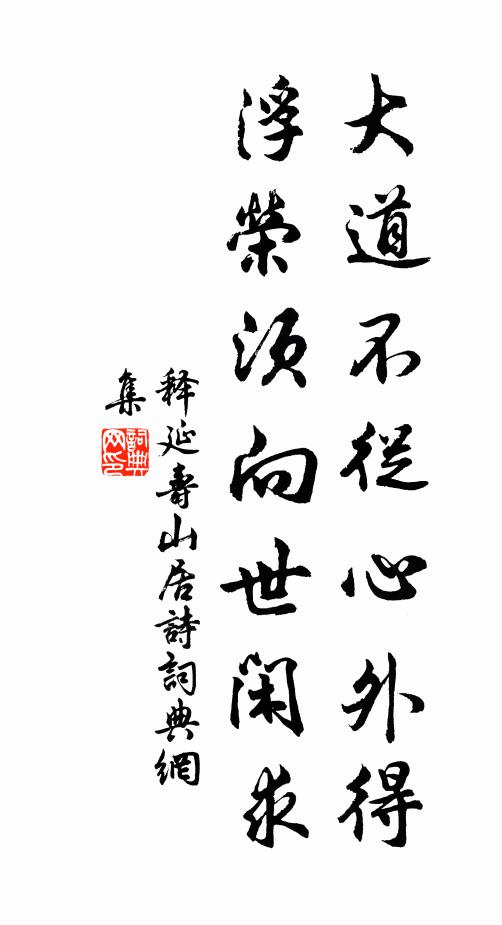 大道不從心外得
浮榮須向世閑求
釋延壽山居詩詞典網
集
詞典網印